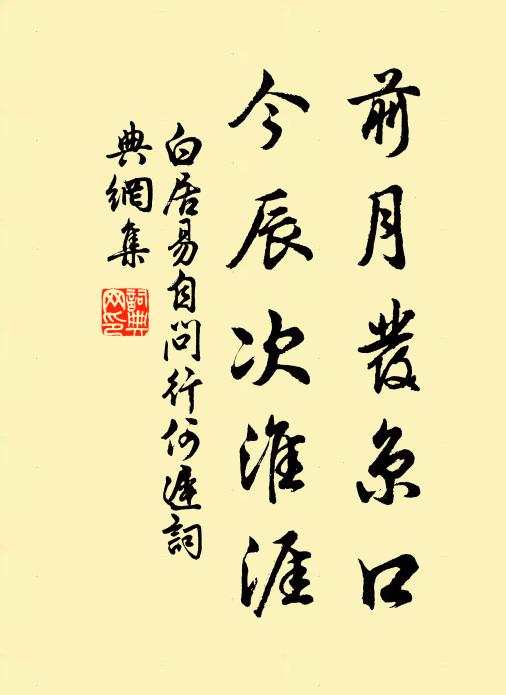 前月發京口
今辰次淮涯
白居易自問行何遲詞
典網集
詞典网印